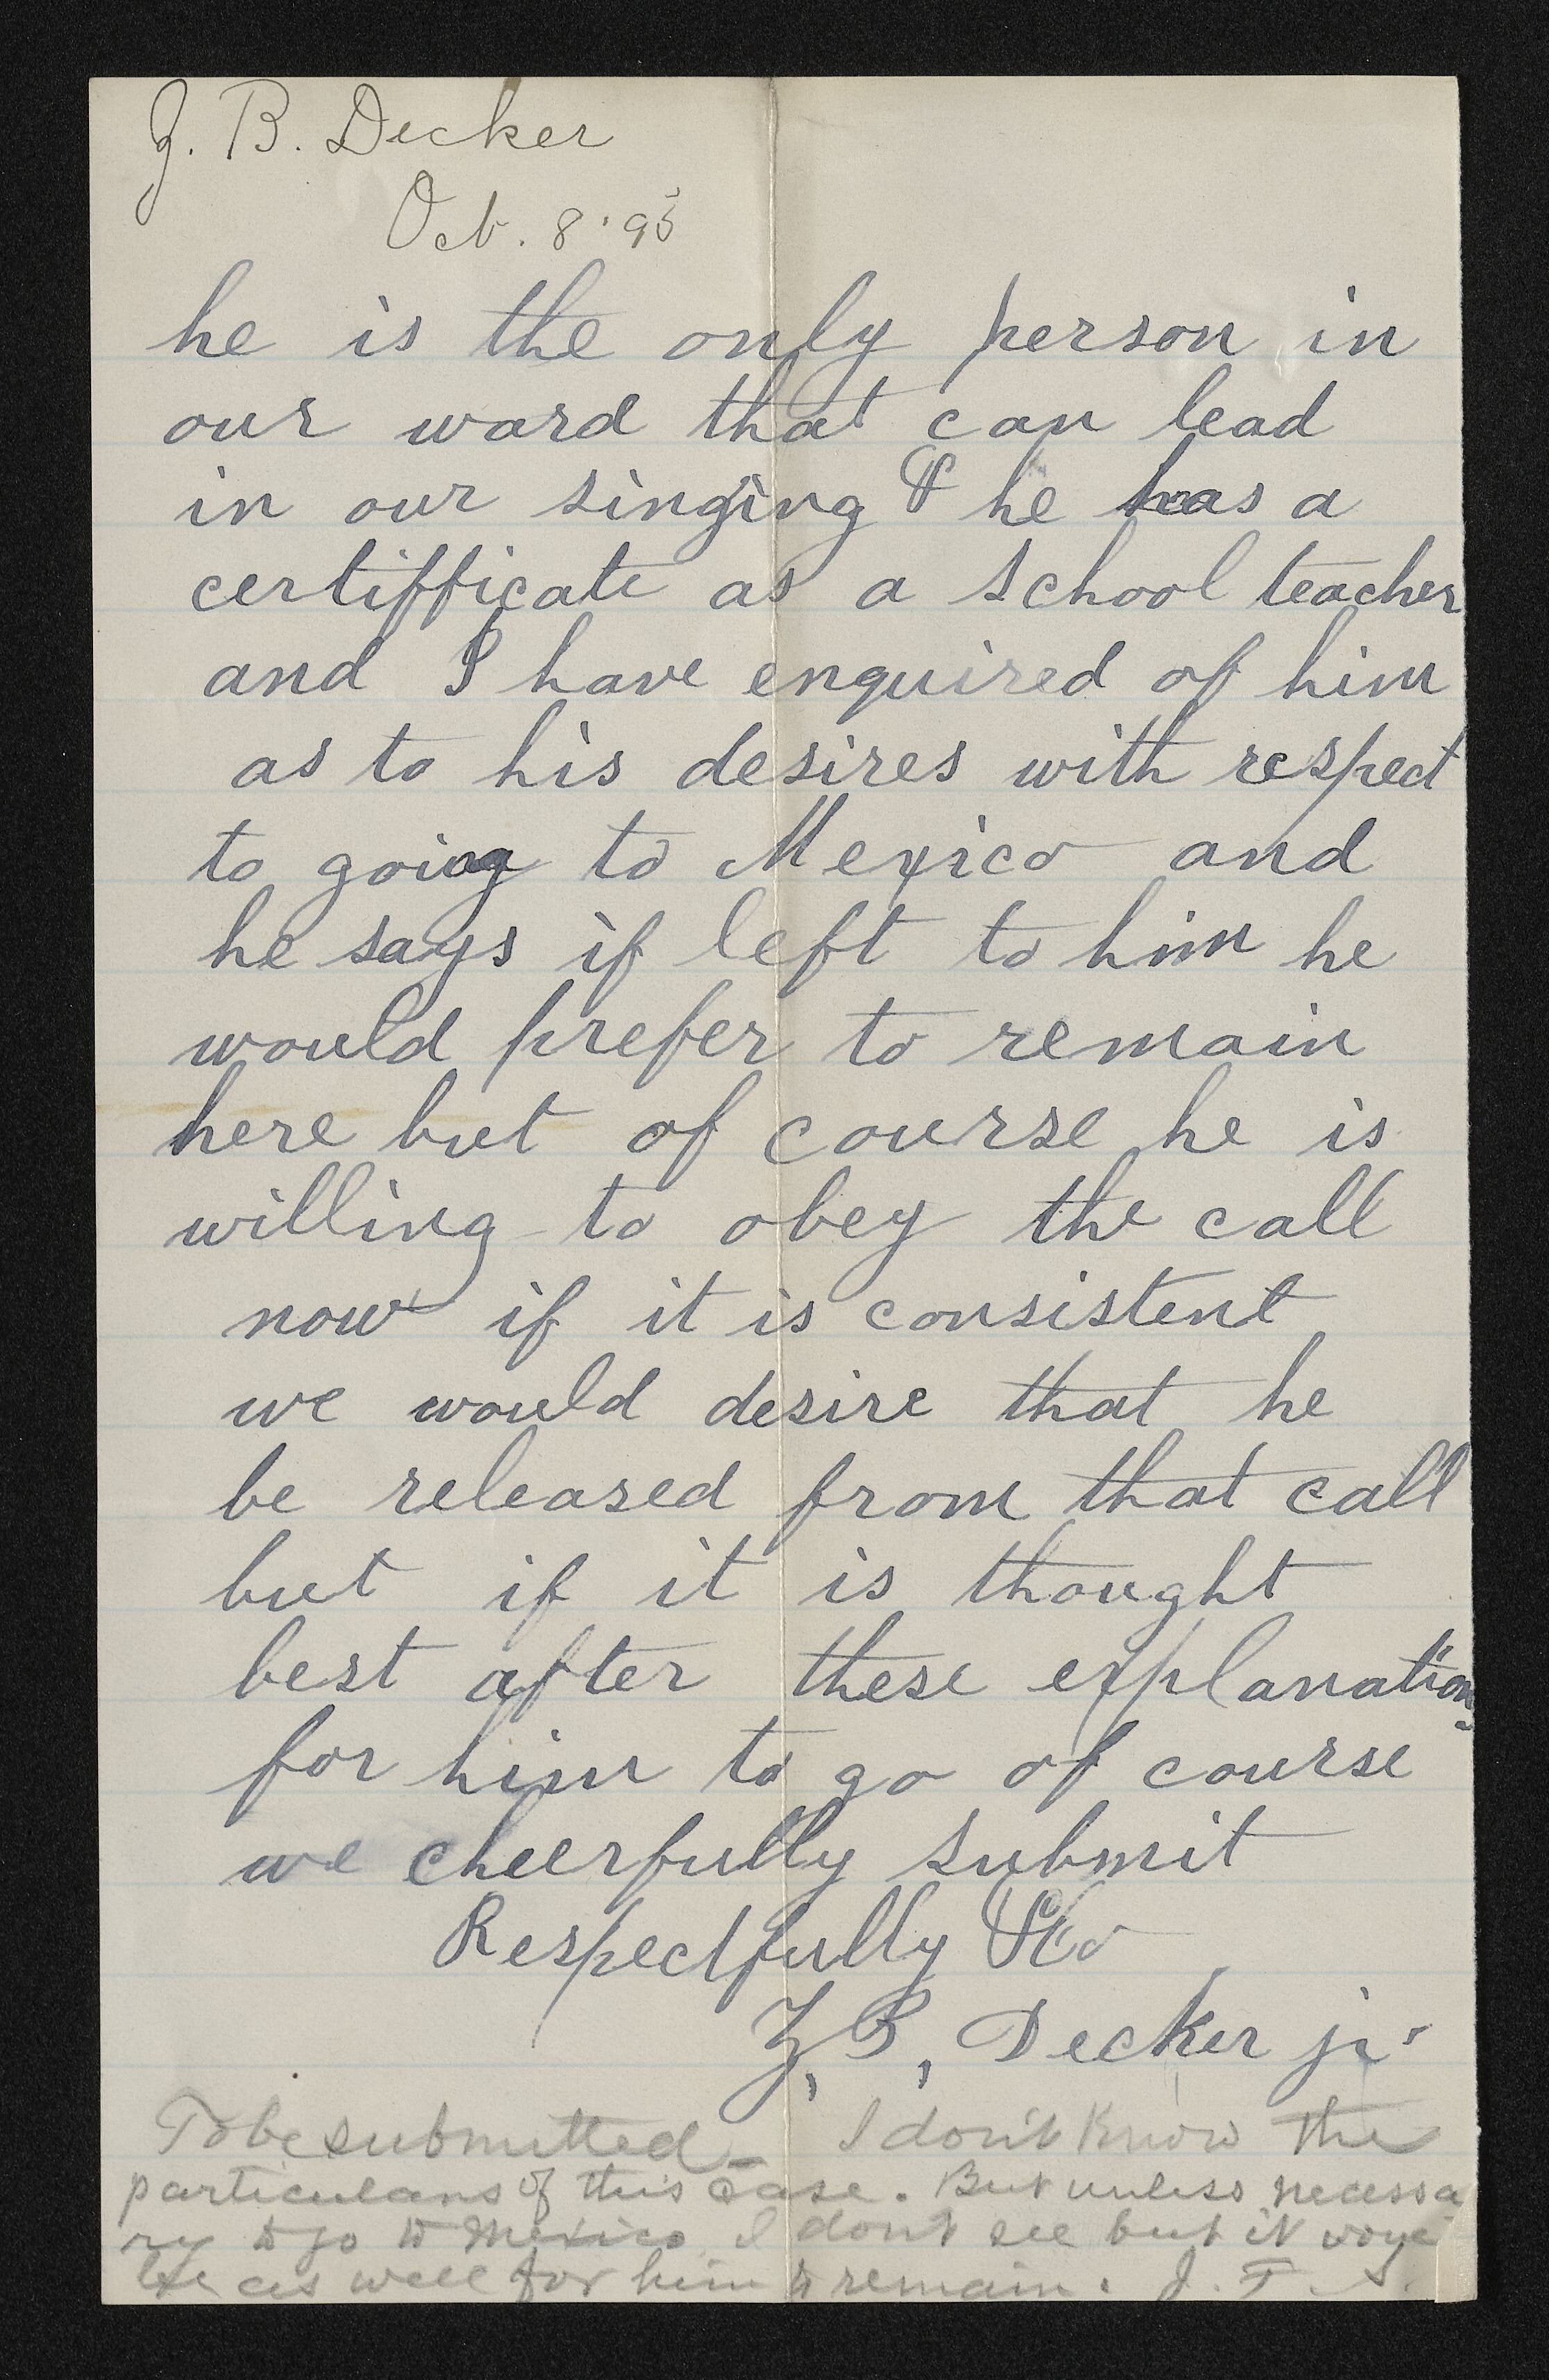 Z. B. Decker
Oct. 8 '95
he is the only person in
our ward that can lead
in our singing & he has a
certifficate as a school teacher
and I have enquired of him
as to his desires with respect
to going to Mexico and
he says if left to him he
would prefer to remain
here but of course he is
willing to obey the call
now if it is consistent
we would desire that he
be released from that call
but if it is thought
best after these explanations
for him to go of course
we cheerfully submit
Respectfully &Co
Z, B, Decker jr
To be submitted – I don't know the
particulars of this case. But unless necessa
ry to go to Mexico I don't see but it would
be as well for him to remain. J. F. S.